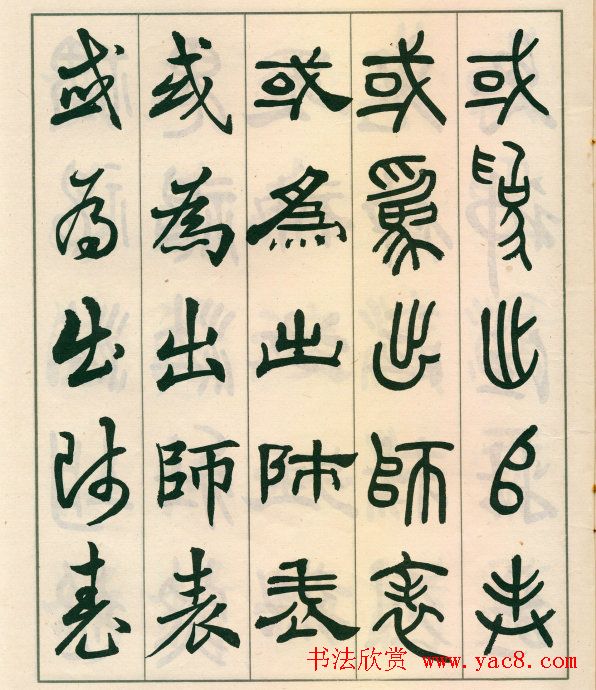 或為出師表
或為出師表
或為出師表
或為出師表
或為出師表
书法欣赏 www.yac8.com